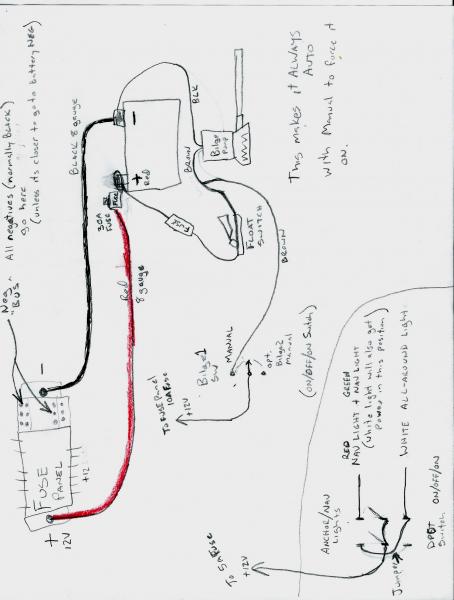 All negatives (normally BLACK)
go here
(unless its closer to go to battery NEG)
Neg
"BUS"
BLACK 8 gauge
-
+
Red
FUSE
30A
FUSE
Red
8 gauge
BLK
BROWN
Bilge
Pump
FUSE
FLOAT
SWITCH
BROWN
This makes it ALWAYS
AUTO
with Manual to force it
ON.
-
FUSE
PANEL
+12
+
12V
Bilge 1
SW
MANUAL
opt.
Bilge 2
Manual
To FUSE Panel
10A Fuse
+12V
(ON/OFF/ON Switch)
RED GREEN
NAV LIGHT + NAV LIGHT
(white light will also get
Power in this position)
WHITE ALL-AROUND Light
ANCHOR/NAV
Lights
Jumper
DPDT ON/OFF/ON
Switch
To 5A Fuse
+12V